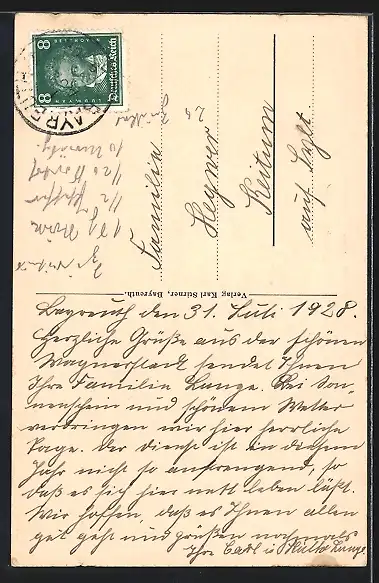 8 8
Deutsches Reich
LUDW. VAN
BAYREUTH
Familie
Heywer
Keitum
auf Sylt.
Verlag Karl Stürner, Bayreuth.
Bayreuth den 31. Juli 1928.
Herzliche Grüße aus der schönen
Wagnerstadt sendet Ihnen
Ihre Familie Lange. Bei Son-
nenschein und schönem Wetter
verbringen wir hier herrliche
Tage. Der Dienst ist in diesem
Jahr nicht so anstrengend, so
daß es sich hier nett leben läßt.
Wir hoffen, daß es Ihnen allen
gut geht und grüßen nochmals
Ihre Carl u. Lange